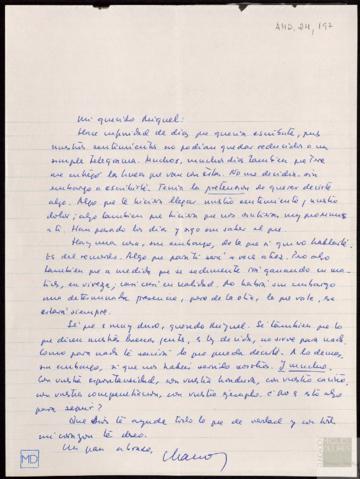 AHD, 24, 197
Mi querido Miguel:
Hace infinidad de días que quería escribirte, pues
nuestros sentimientos no podían quedar reducidos a un
simple telegrama. Muchos, muchos días también que Tere
me entregó la
No me decidía, sin
embargo a escribirte. Tenía la pretensión de querer decirte
algo. Algo que te hiciera llegar nuestro sentimiento, nuestro
dolor; algo también que hiciera que nos sintieras muy próximos
a ti. Han pasado los días y sigo sin saber el qué.
Hay una cosa, sin embargo, de la que sí quiero hablarte.
Es del recuerdo. Algo que para ti será a veces atroz. Pero algo
también que a medida que se sedimente irá ganando en
en viveza, casi casi en realidad. No habrá sin embargo
una determinada presencia, pero de la otra, la que vale, no
estará siempre.
Sé que es muy duro, querido Miguel. Sé también que lo
que dicen nuestras buenas gentes, es ley de vida, no sirve para nada.
Como para nada te servirá lo que pueda decirte. A los demás,
sin embargo, sí que nos habéis servido vosotros. Y mucho.
Con vuestra espontaneidad, con vuestra hondura, con vuestro cariño,
con vuestra compenetración, con vuestro ejemplo. ¿O no es esto algo
para seguir?
Que Dios te ayude todo lo que de verdad y con todo
mi corazón te deseo.
Un gran abrazo,
MD